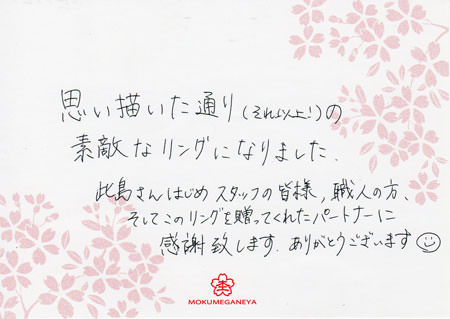 思い描いた通り（それ以上！）の
素敵なリングになりました．
此島さんはじめスタッフの皆様，職人の方、
そしてこのリングを贈ってくれたパートナーに
感謝致します．ありがとうございます
MOKUMEGANEYA